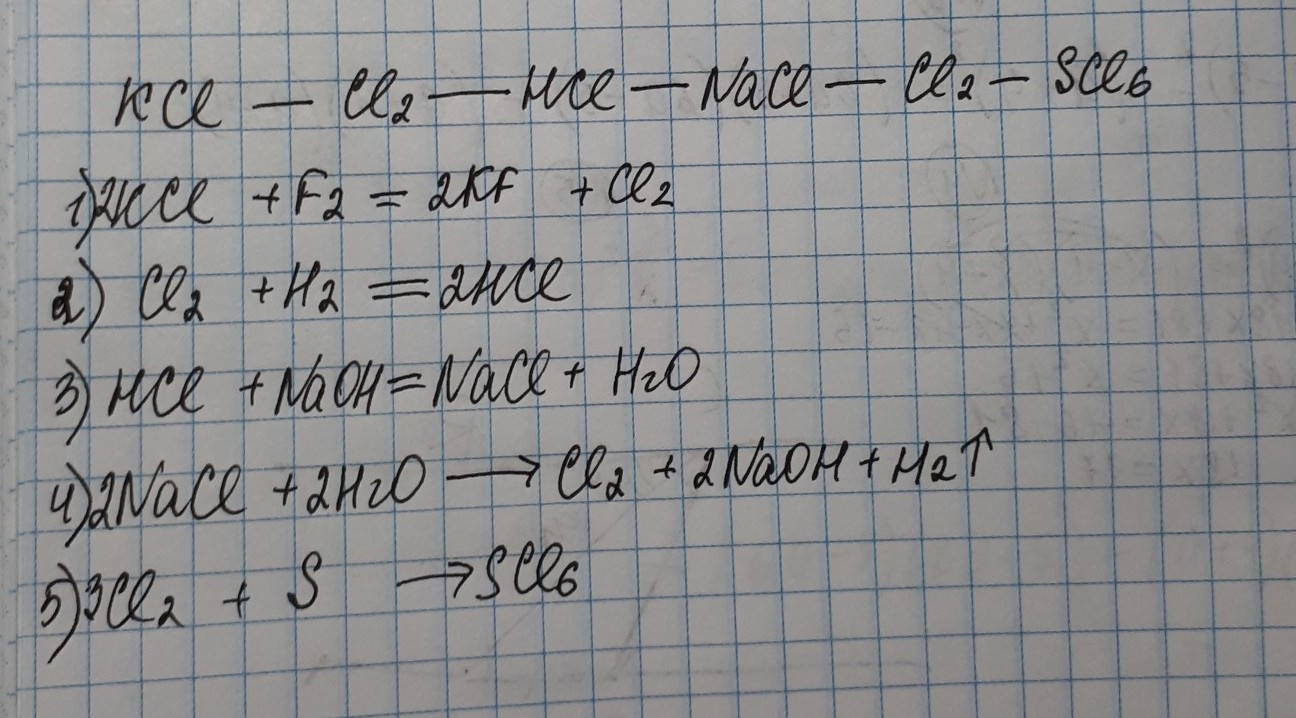 KCl — Cl₂ — HCl — NaCl — Cl₂ — SCl₆
1) 2KCl + F₂ = 2KF + Cl₂
2) Cl₂ + H₂ = 2HCl
3) HCl + NaOH = NaCl + H₂O
4) 2NaCl + 2H₂O → Cl₂ + 2NaOH + H₂↑
5) 3Cl₂ + S → SCl₆